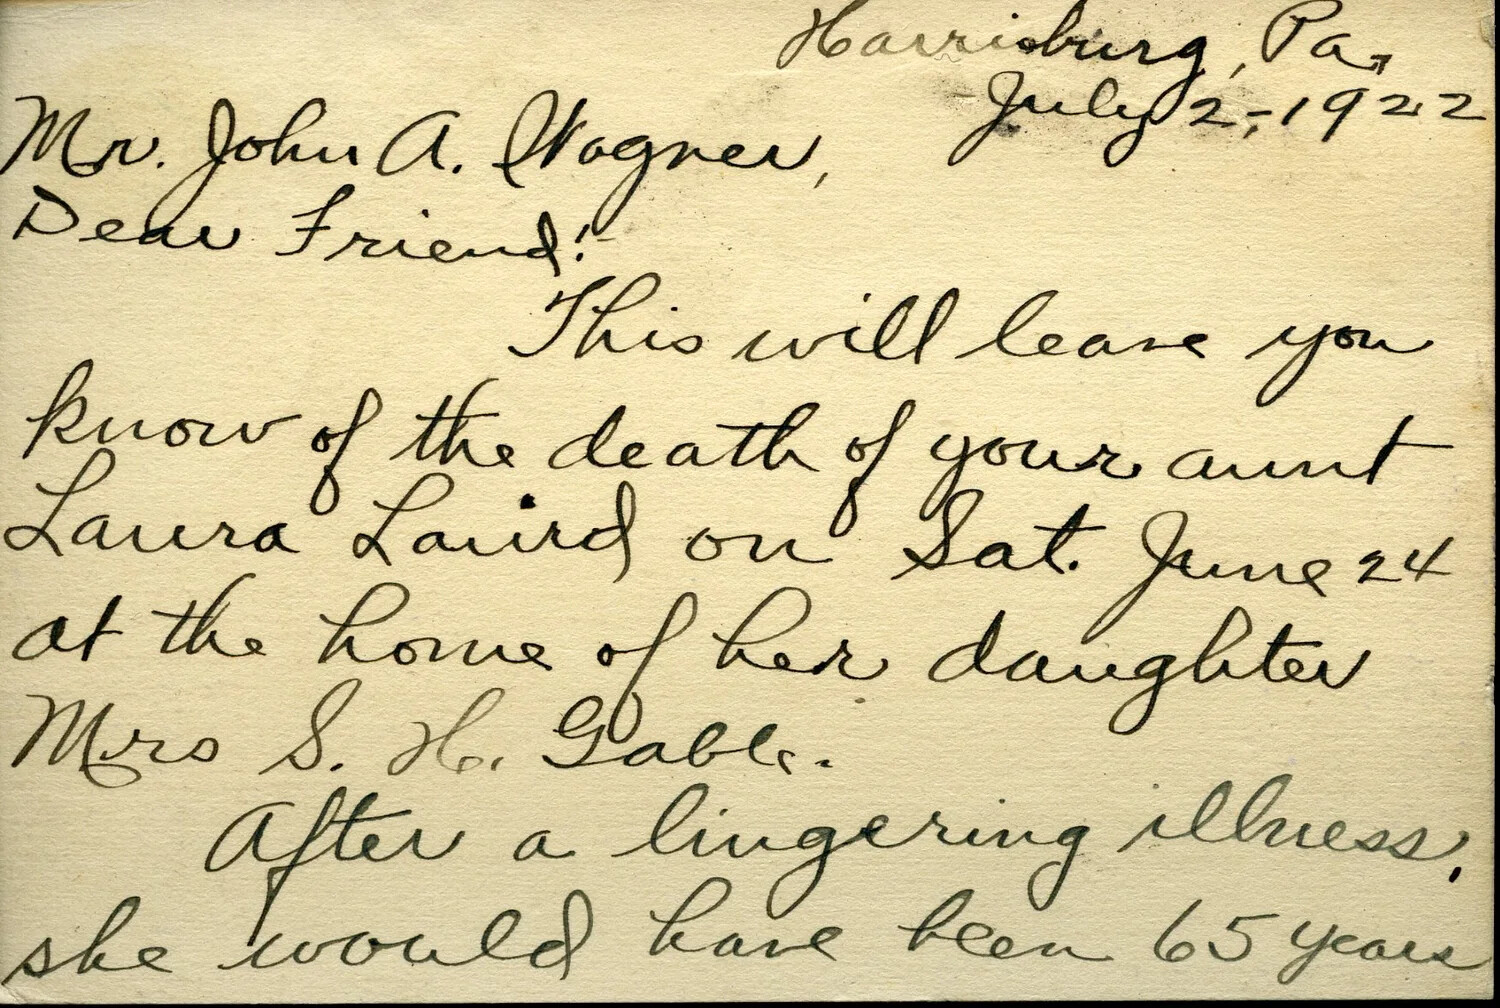 Harrisburg, Pa,
July 2,-1922
Mr. John A. Wagner,
Dear Friend!-
This will leave you
know of the death of your aunt
Laura Laird on Sat. June 24
at the home of her daughter
Mrs S. H. Gable.
After a lingering illness,
she would have been 65 years